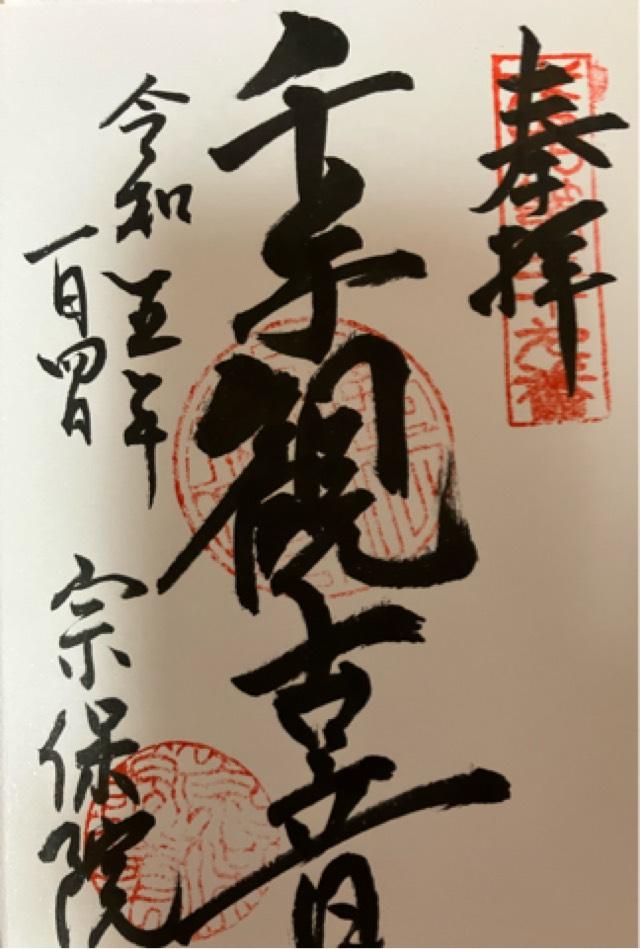 奉拝
千手観世音
令和五年
一月四日
宗保院